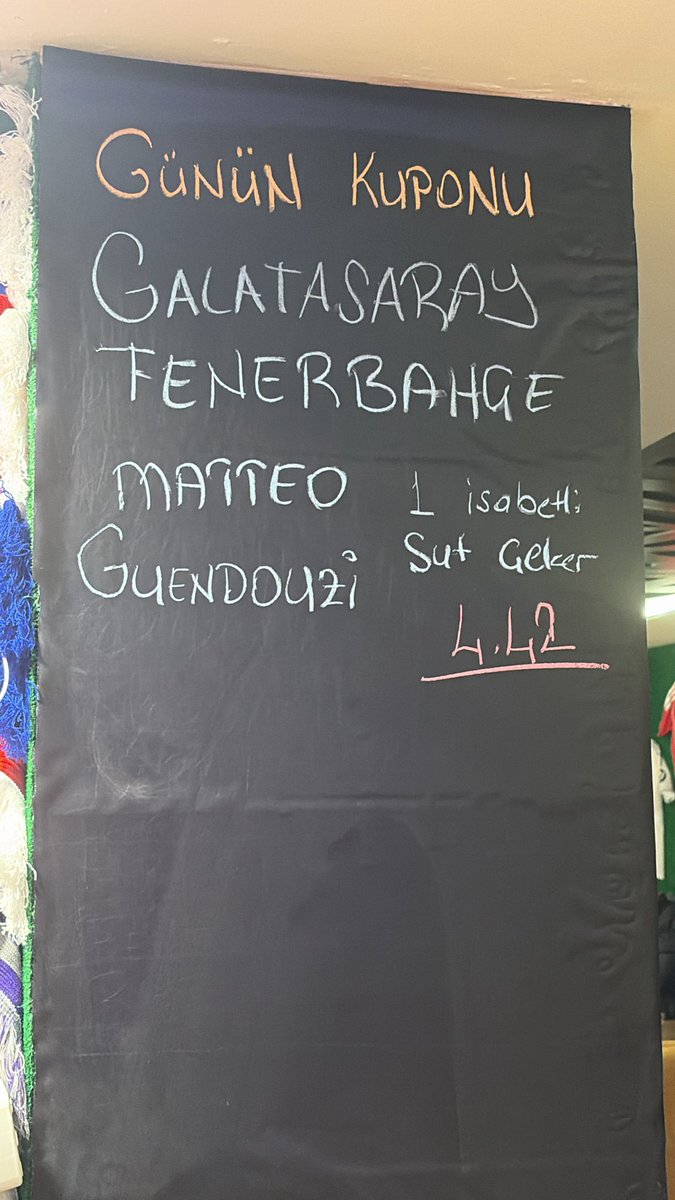 GÜNÜN KUPONU
GALATASARAY
FENERBAHGE
MATTEO 1 isabetli
GUENDOUZi Sut Geker
4.42